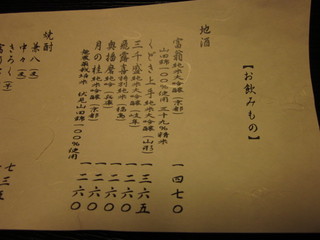 【お飲みもの】
地酒
富翁 純米大吟醸(京都) 一四七〇
山田錦一〇〇%使用 三十九%精米
くどき上手 純米大吟醸(山形) 一三六五
三千盛 純米大吟醸(岐阜) 一二六〇
飛露喜 特別純米(福島) 一二六〇
奥播磨 純吟(兵庫) 一二六〇
月の桂 純米吟醸(京都) 一二六〇
伏見山田錦一〇〇%使用
焼酎
兼八(麦) 七三五
中々(麦)
きろく(芋)